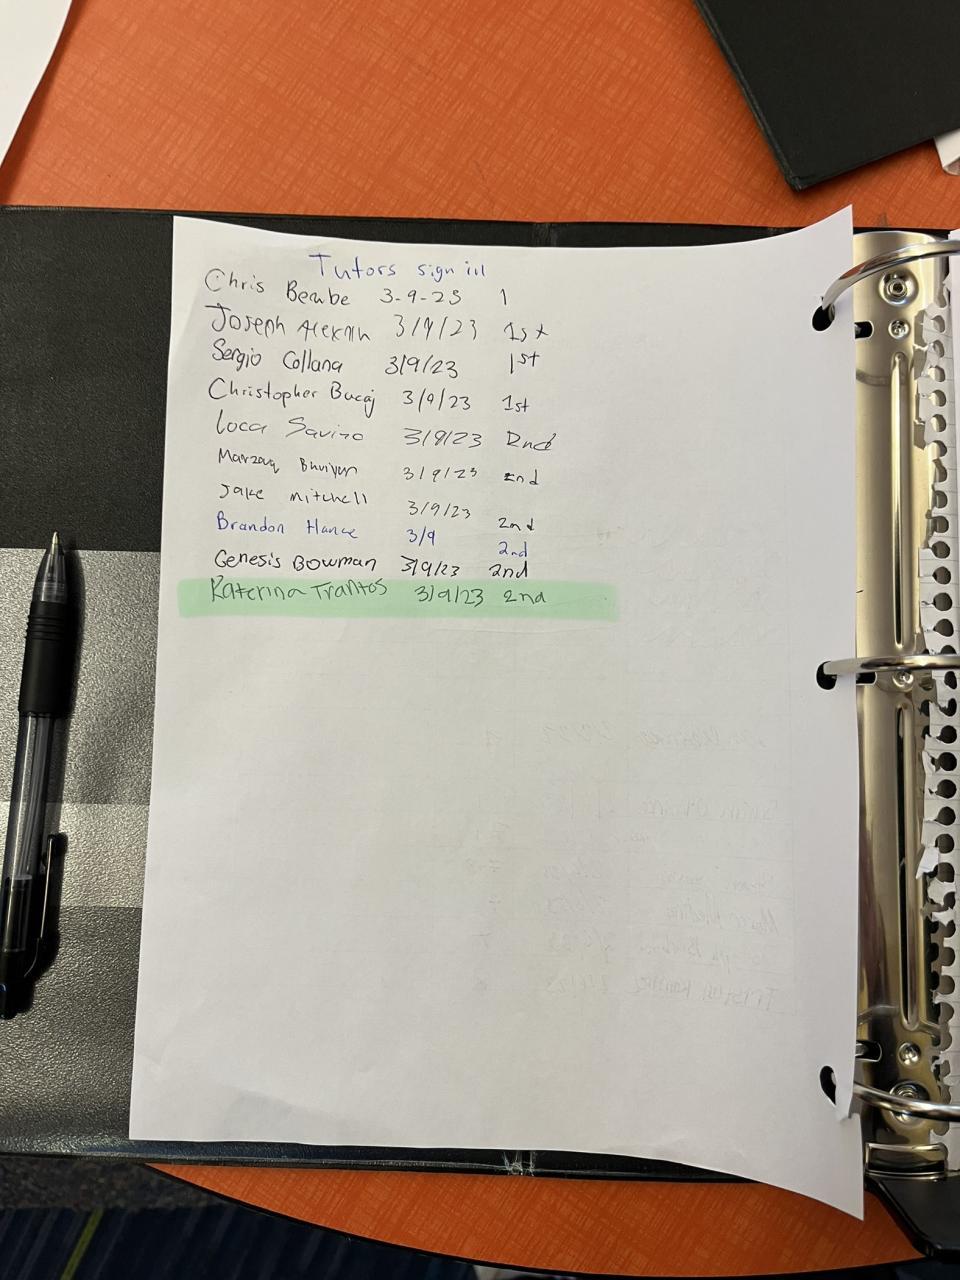 Tutors sign in
Chris Bembe 3-9-23 1
Joseph 3/9/23 1st
Sergio Collana 3/9/23 1st
Christopher Bucaj 3/9/23 1st
Luca Savino 3/9/23 2nd
Marzouq Bhuiyan 3/9/23 2nd
Jake mitchell 3/9/23 2nd
Brandon Hance 3/9 2nd
Genesis Bowman 3/9/23 2nd
Katerina Trantos 3/9/23 2nd